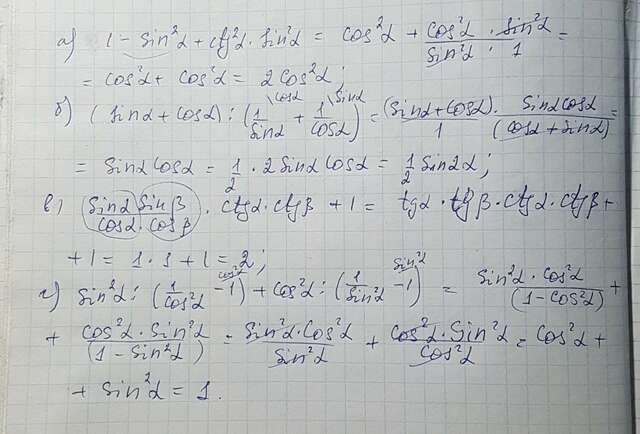 а) 1 - sin²α + ctg²α · sin²α = cos²α + cos²α/sin²α · sin²α/1 =
= cos²α + cos²α = 2cos²α;
б) (sinα + cosα) : (1/sinα \cosα + 1/cosα \sinα) = (sinα + cosα)/1 · sinα cosα/(cosα + sinα) =
= sinα cosα = 1/2 · 2 sinα cosα = 1/2 sin2α;
в) sinα sinβ/cosα · cosβ · ctgα · ctgβ + 1 = tgα · tgβ · ctgα · ctgβ +
+ 1 = 1 · 1 + 1 = 2;
г) sin²α : (1/cos²α - 1 \cos²α) + cos²α : (1/sin²α - 1 \sin²α) = sin²α · cos²α/(1 - cos²α) +
+ cos²α · sin²α/(1 - sin²α) = sin²α · cos²α/sin²α + cos²α · sin²α/cos²α = cos²α +
+ sin²α = 1.